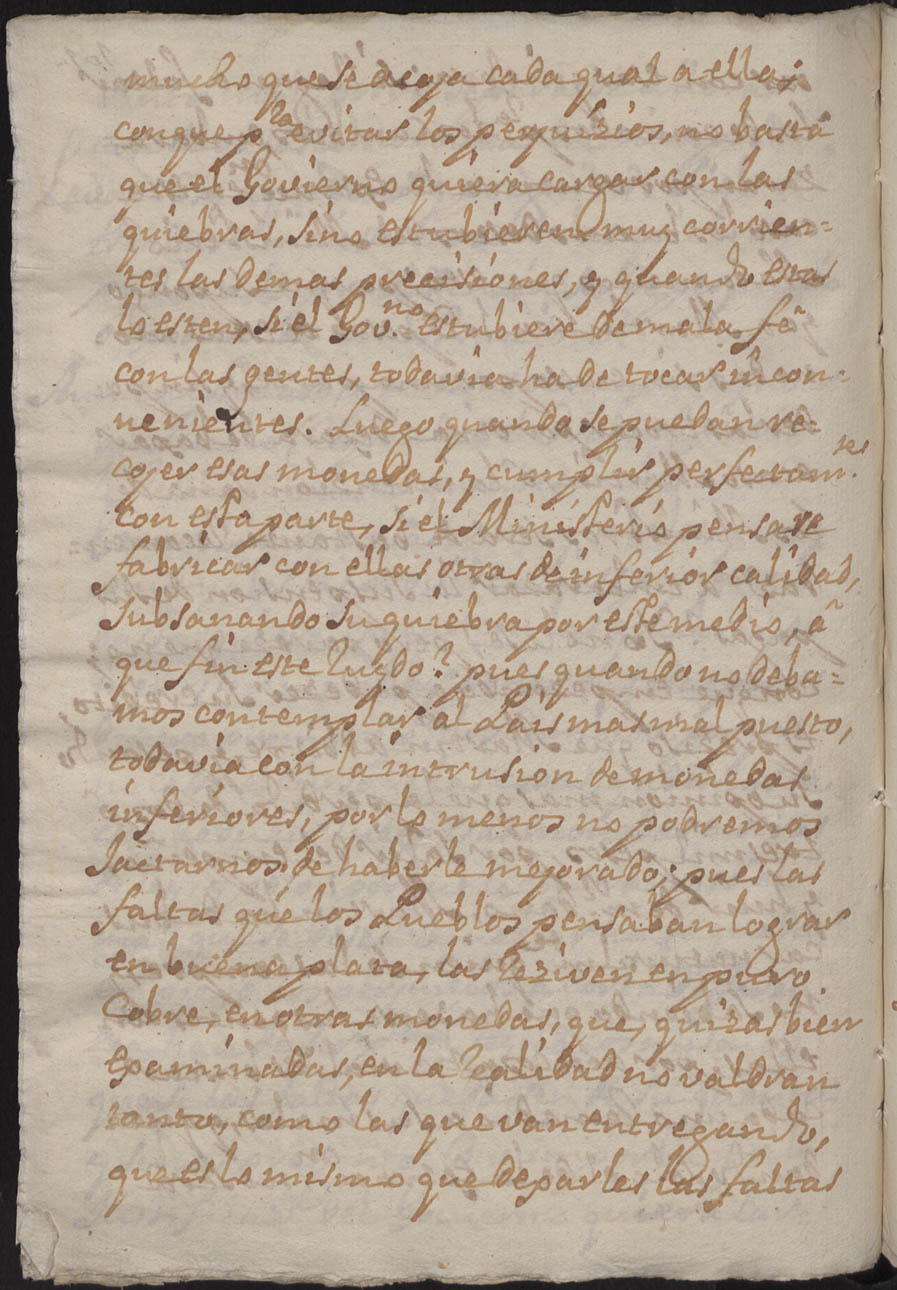 mucho que se acoja cada qual a ella;
conque p.ra evitar los perjuizios, no basta
que el Govierno quiera cargar con las
quiebras, sino estubieren muy corrien=
tes las demas precisiones, y quando estas
lo esten, si el Gov.no estubiere de mala fé
con las gentes, todavia ha de tocar incon=
nenientes. Luego quando se puedan re=
cojer esas monedas, y cumplir perfectam.tes
con esta parte, si el Ministerio pensare
fabricar con ellas otras de inferior calidad,
subsanando su quiebra por este medio, â
que fin este luydo? pues quando no deba=
mos contemplar al Pais mas mal puesto,
todavia con la intrusion de monedas
inferiores, por lo menos no podremos
jactarnos de haberle mejorado; pues las
faltas que los Pueblos pensaban lograr
en buena plata, las reziven en puro
Cobre, en otras monedas, que, quizas bien
examinadas, en la realidad no valdran
tanto, como las que van entregando,
que es lo mismo que dexarles las faltas